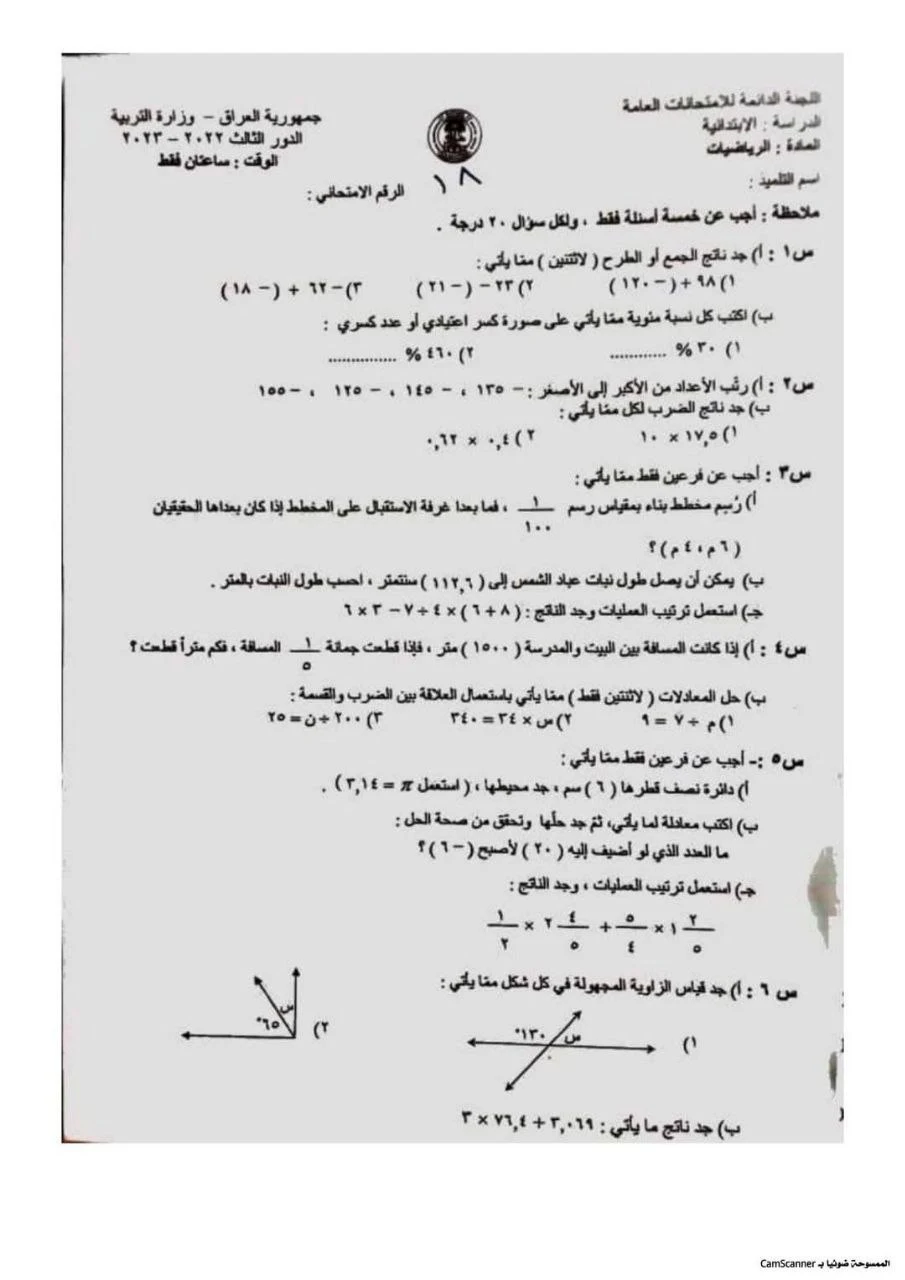 اللجنة الدائمة للامتحانات العامة
الدراسة : الابتدائية
المادة : الرياضيات
اسم التلميذ :
جمهورية العراق - وزارة التربية
الدور الثالث ٢٠٢٢ - ٢٠٢٣
الوقت : ساعتان فقط
الرقم الامتحاني :
١٨
ملاحظة : أجب عن خمسة أسئلة فقط ، ولكل سؤال ٢٠ درجة .
س١ : أ) جد ناتج الجمع أو الطرح ( لاثنتين ) مما يأتي :
١) ٩٨ + ( - ١٢٠ ) ٢) ٢٣ - ( - ٢١ ) ٣) - ٦٢ + ( - ١٨ )
ب) اكتب كل نسبة مئوية مما يأتي على صورة كسر اعتيادي أو عدد كسري :
١) ٣٠ % ............ ٢) ٤٦٠ % ...............
س٢ : أ) رتّب الأعداد من الأكبر إلى الأصغر : - ١٣٥ ، - ١٤٥ ، - ١٢٥ ، - ١٥٥
ب) جد ناتج الضرب لكل مما يأتي :
١) ١٧,٥ × ١٠ ٢) ٠,٤ × ٠,٦٢
س٣ : أجب عن فرعين فقط مما يأتي :
أ) رُسِم مخطط بناء بمقياس رسم ١/١٠٠ ، فما بعدا غرفة الاستقبال على المخطط إذا كان بعداها الحقيقيان
( ٦ م ، ٤ م ) ؟
ب) يمكن أن يصل طول نبات عباد الشمس إلى ( ١١٢,٦ ) سنتمتر ، احسب طول النبات بالمتر .
جـ) استعمل ترتيب العمليات وجد الناتج : ( ٨ + ٦ ) × ٤ ÷ ٧ - ٣ × ٦
س٤ : أ) إذا كانت المسافة بين البيت والمدرسة ( ١٥٠٠ ) متر ، فإذا قطعت جمانة ١/٥ المسافة ، فكم متراً قطعت ؟
ب) حل المعادلات ( لاثنتين فقط ) مما يأتي باستعمال العلاقة بين الضرب والقسمة :
١) م ÷ ٧ = ٩ ٢) س × ٣٤ = ٣٤٠ ٣) ٢٠٠ ÷ ن = ٢٥
س٥ :- أجب عن فرعين فقط مما يأتي :
أ) دائرة نصف قطرها ( ٦ ) سم ، جد محيطها ، ( استعمل π = ٣,١٤ ) .
ب) اكتب معادلة لما يأتي، ثمّ جد حلّها وتحقق من صحة الحل :
ما العدد الذي لو أضيف إليه ( ٢٠ ) لأصبح ( - ٦ ) ؟
جـ) استعمل ترتيب العمليات ، وجد الناتج :
١ ٢/٥ × ٥/٤ + ٢ ٤/٥ × ١/٢
س ٦ : أ) جد قياس الزاوية المجهولة في كل شكل مما يأتي :
١) س ١٣٠° ٢) س ٦٥°
ب) جد ناتج ما يأتي : ٣,٠٦٩ + ٧٦,٤ × ٣
الممسوحة ضوئيا بـ CamScanner